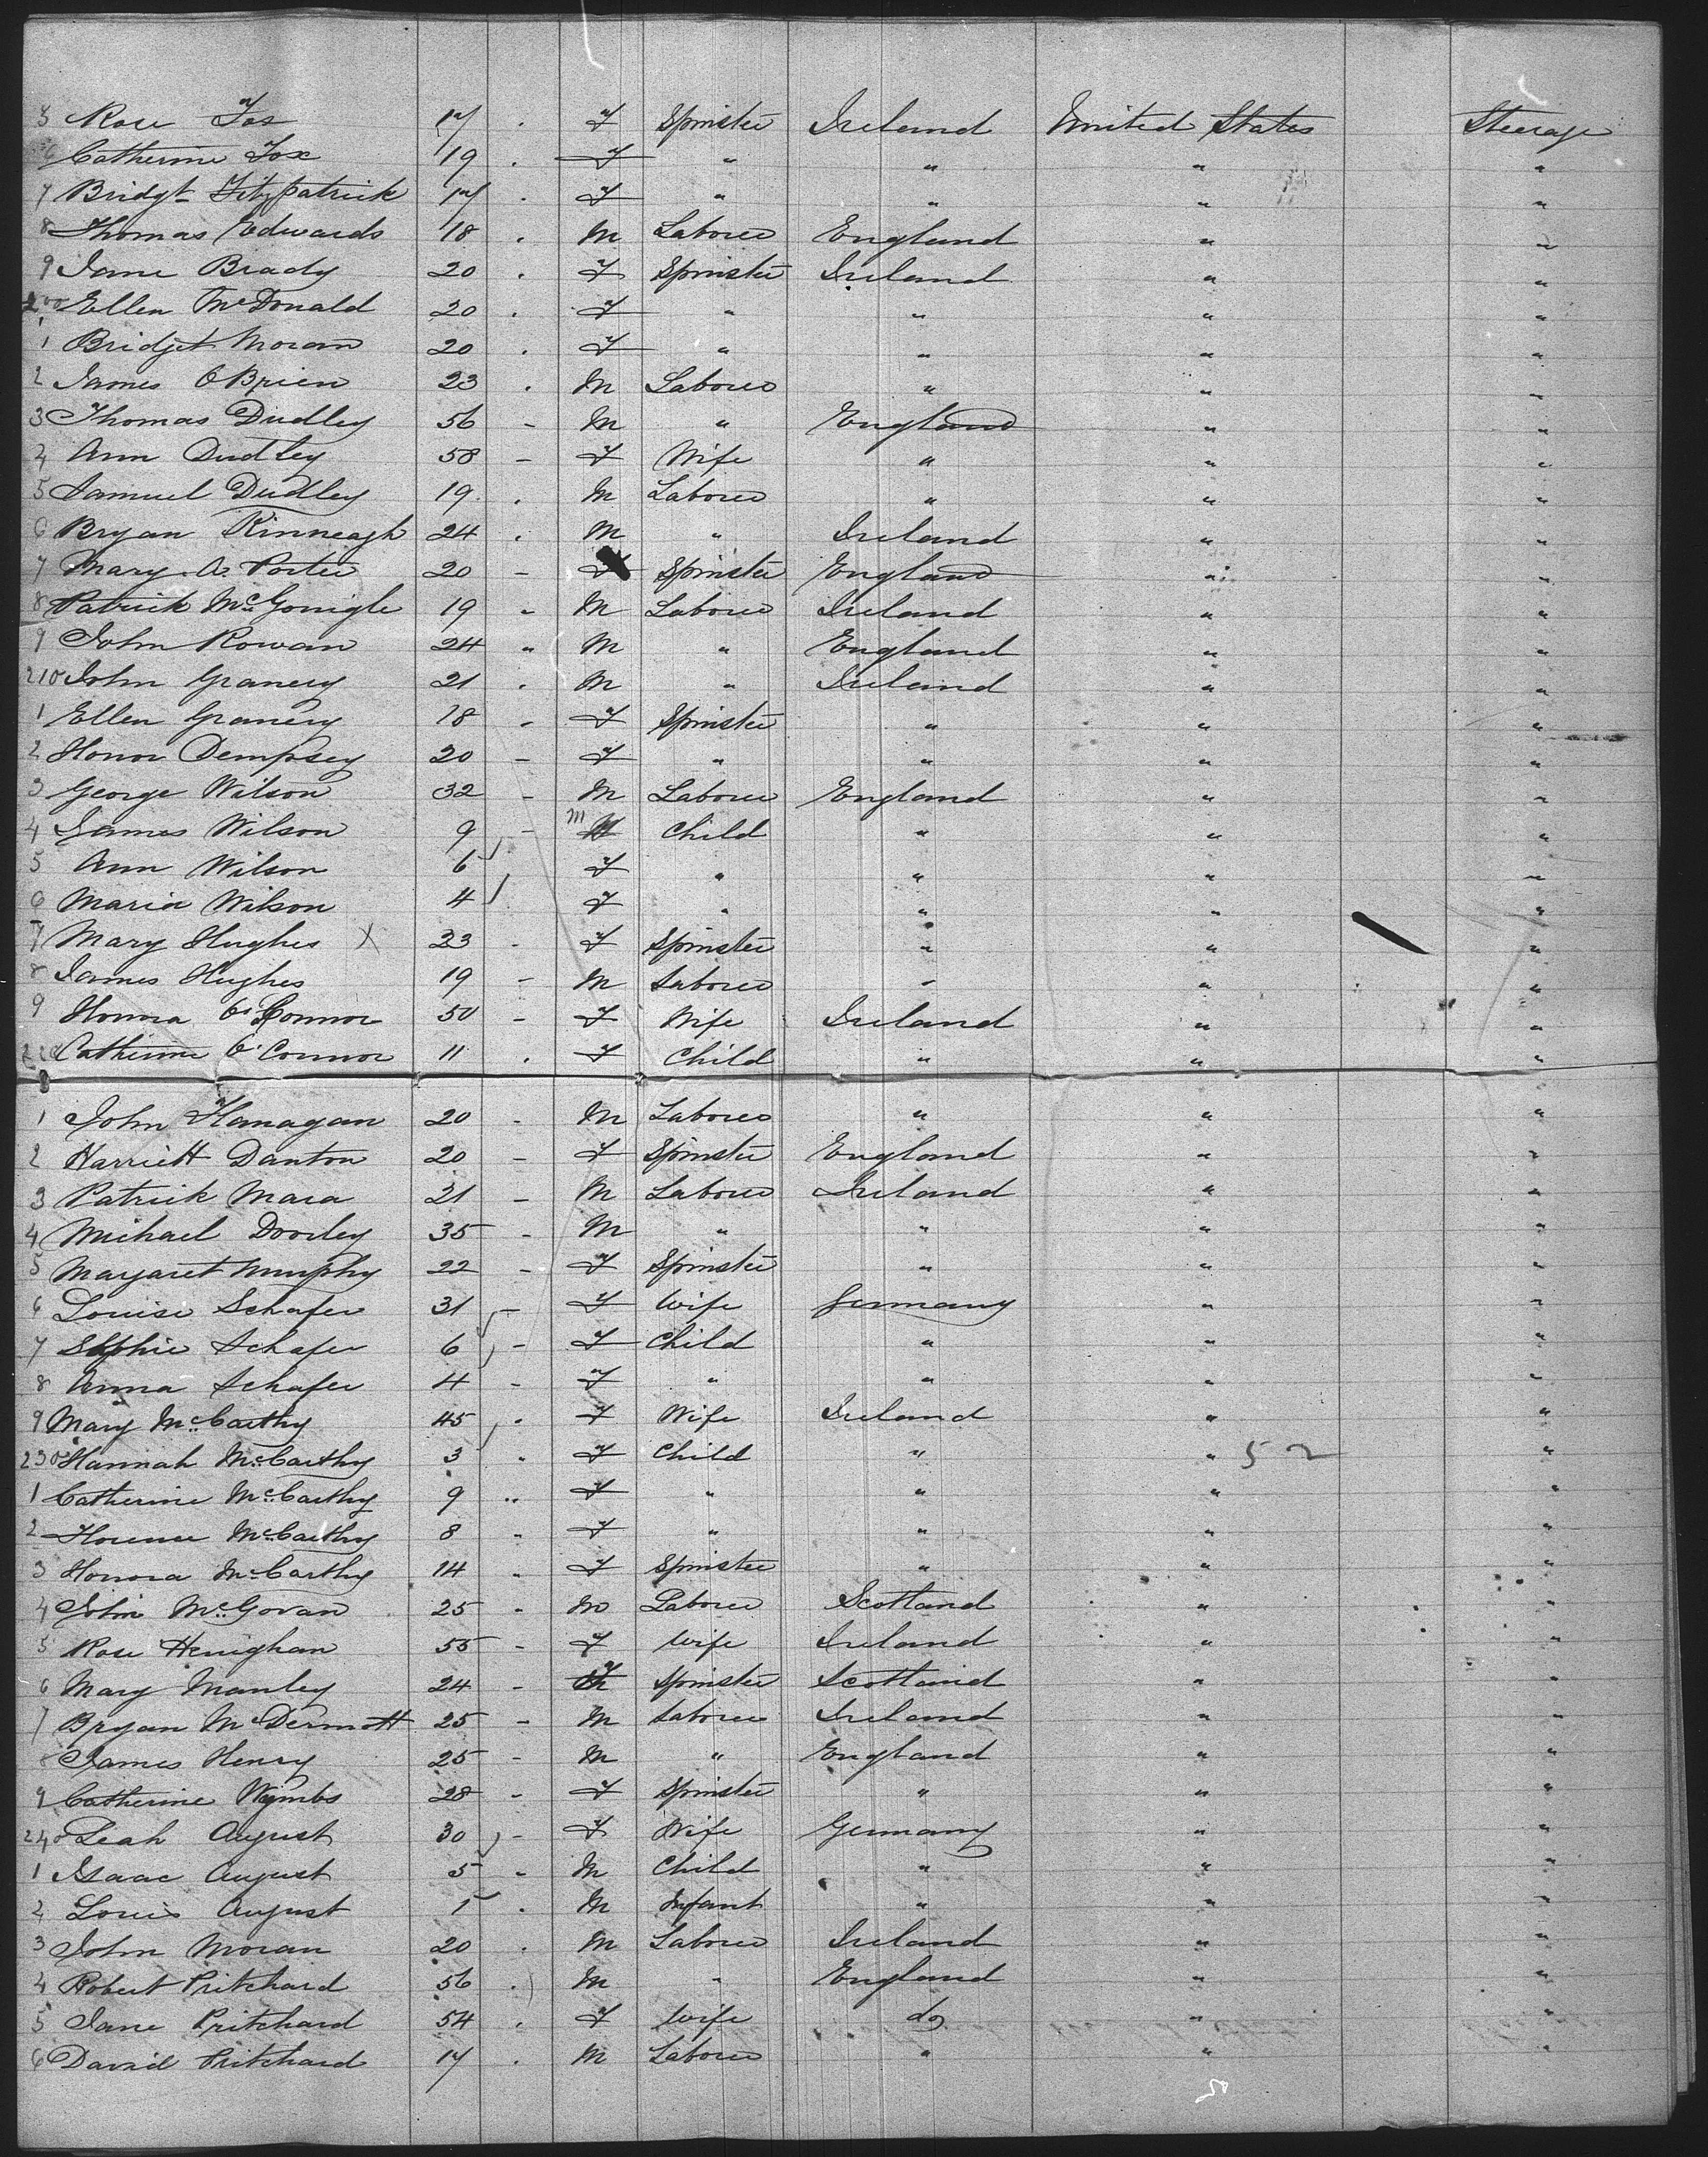 5 Rose Fox 17 . F Spinster Ireland United States Steerage
6 Catherine Fox 19 . F " " " "
7 Bridgt Fitzpatrick 17 . F " " " "
8 Thomas Edwards 18 . M Laborer England " "
9 Jane Brady 20 . F Spinster Ireland " "
200 Ellen McDonald 20 . F " " " "
1 Bridget Moran 20 . F " " " "
2 James OBrien 23 . M Laborer " " "
3 Thomas Dudley 56 - M " England " "
4 Ann Dudley 58 - F Wife " " "
5 Samuel Dudley 19 . M Laborer " " "
6 Bryan Kinneagh 24 . M " Ireland " "
7 Mary A Porter 20 - F Spinster England " "
8 Patrick McGonigle 19 - M Laborer Ireland " "
9 John Rowan 24 " M " England " "
210 John Granery 21 . M " Ireland " "
1 Ellen Granery 18 - F Spinster " " "
2 Honor Dempsey 20 - F " " " "
3 George Wilson 32 - M Laborer England " "
4 James Wilson 9 - M Child " " "
5 Ann Wilson 6 F " " " "
6 Maria Wilson 4 F " " " "
7 Mary Hughes X 23 - F Spinster " " "
8 James Hughes 19 - M Laborer " " "
9 Honora O'Connor 50 - F Wife Ireland " "
220 Catherine O'Connor 11 . F Child " " "
1 John Flanagan 20 - M Laborer " " "
2 Harriett Danton 20 - F Spinster England " "
3 Patrick Mara 21 - M Laborer Ireland " "
4 Michael Doorley 35 - M " " " "
5 Margaret Murphy 22 - F Spinster " " "
6 Louise Schafer 31 - F Wife Germany " "
7 Sophie Schafer 6 - F Child " " "
8 Anna Schafer 4 - F " " " "
9 Mary McCarthy 45 . F Wife Ireland " "
230 Hannah McCarthy 3 " F Child " " 52 "
1 Catherine McCarthy 9 " F " " " "
2 Florence McCarthy 8 " F " " " "
3 Honora McCarthy 14 " F Spinster " " "
4 John McGovan 25 - M Laborer Scotland " "
5 Rose Henighan 55 - F Wife Ireland " "
6 Mary Manley 24 - F Spinster Scotland " "
7 Bryan McDermott 25 - M Laborer Ireland " "
8 James Henry 25 - M " England " "
9 Catherine Wymbs 28 - F Spinster " " "
240 Leah August 30 - F Wife Germany " "
1 Isaac August 5 - M Child " " "
2 Louis August 1 . M Infant " " "
3 John Moran 20 . M Laborer Ireland " "
4 Robert Pritchard 56 . M " England " "
5 Jane Pritchard 54 . F Wife do " "
6 David Pritchard 17 . M Laborer " " "